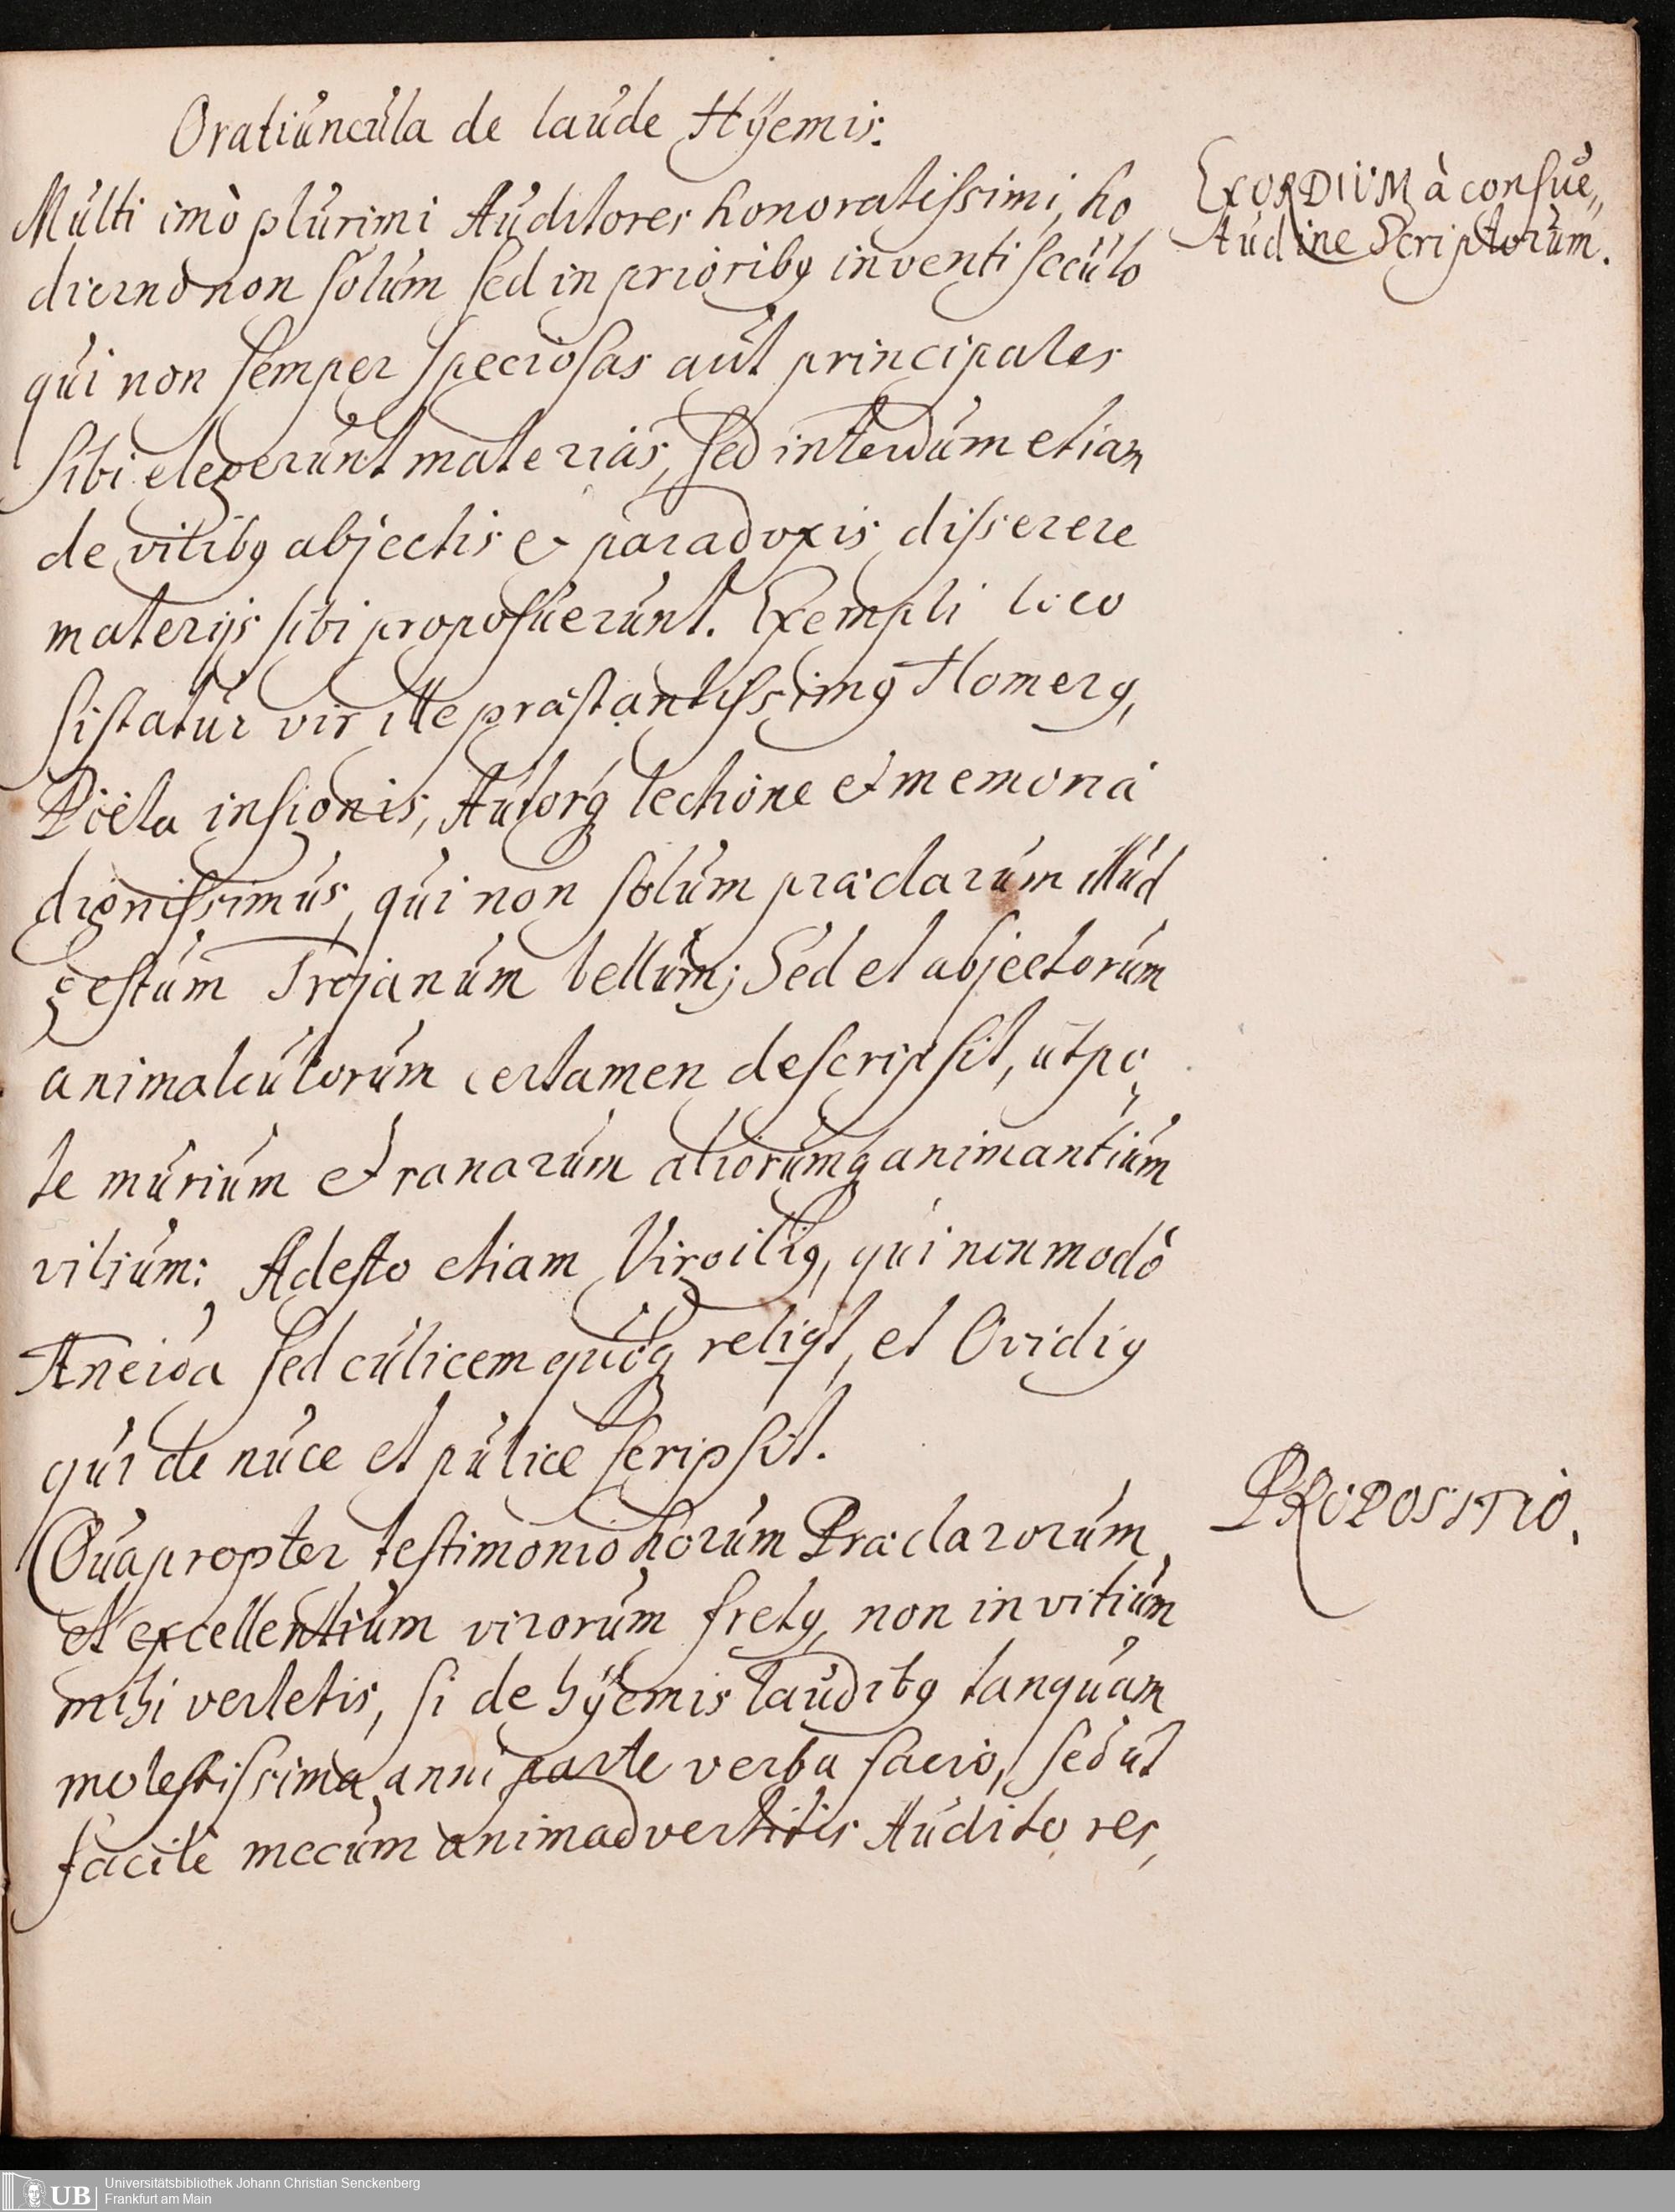 Oratiuncula de laude Hÿemis.
Multi imò plurimi Auditores honoratissimi, ho,
EXORDIUM à consue„
tudine Scriptorum.
dierno non solum sed in priorib9 inventi seculo
qui non semper speciosas aut principales
sibi elegerunt materias, sed interdum etiam
de vilib9 abjectis & paradoxis disserere
materijs sibi proposuerunt. Exempli loco
sistatur vir ille præstantissim9 Homer9,
Poëta insignis, Autorq lectione et memoriâ
dignissimus, qui non solum præclarum illud
gestum Trojanum bellum; Sed et abjectorum
animalculorum certamen descripsit, utpo,
te murium et ranarum aliorumq animantium
vilium: Adesto etiam Virgili9, qui non modò
Æneida sed culicem quoq reliqt, et Ovidi9
qui de nuce et pulice scripsit.
PROPOSITIO.
Quapropter testimonio horum Præclarorum
et excellentium virorum fret9, non in vitium
mihi vertetis, si de hÿemis laudib9 tanquam
molestissima anni parte verba facio, sed ut
facilè mecum animadvertitis Auditores,
Universitätsbibliothek Johann Christian Senckenberg
UB Frankfurt am Main